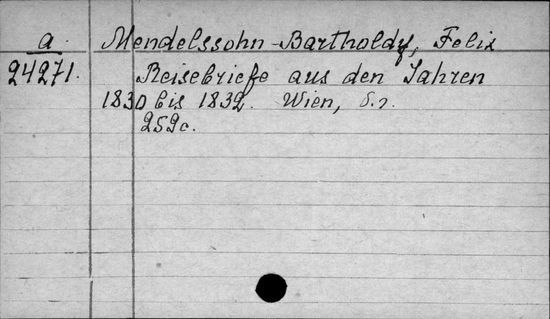 a Mendelssohn-Bartholdy, Felix
24271. Reisebriefe aus den Jahren
1830 bis 1832. Wien, s.a.
252c.